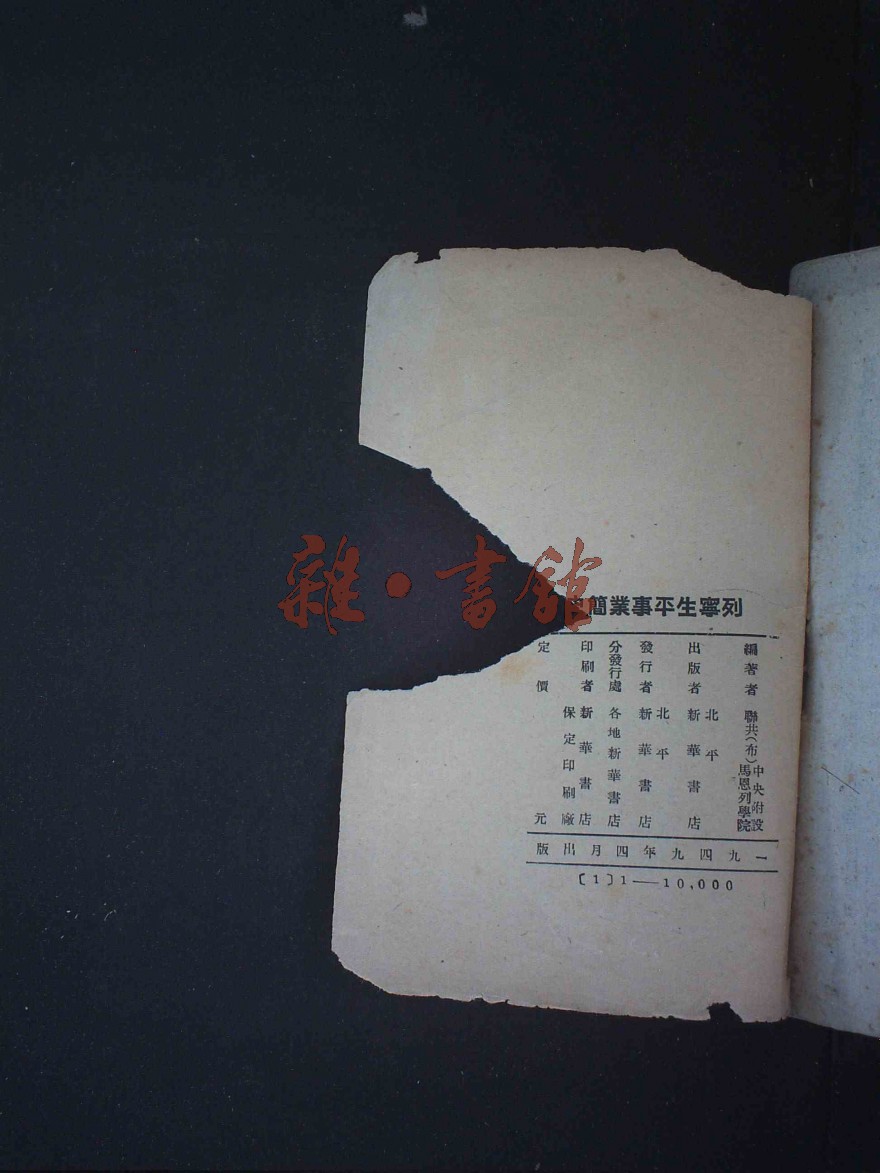 列寧生平事業簡史
編著者 聯共(布)中央附設馬恩列學院
出版者 北平新華書店
發行者 北平新華書店
分發行處 各地新華書店
印刷者 新華書店保定印刷廠
定價 元
一九四九年四月出版
〔1〕1—10,000
雜·書館